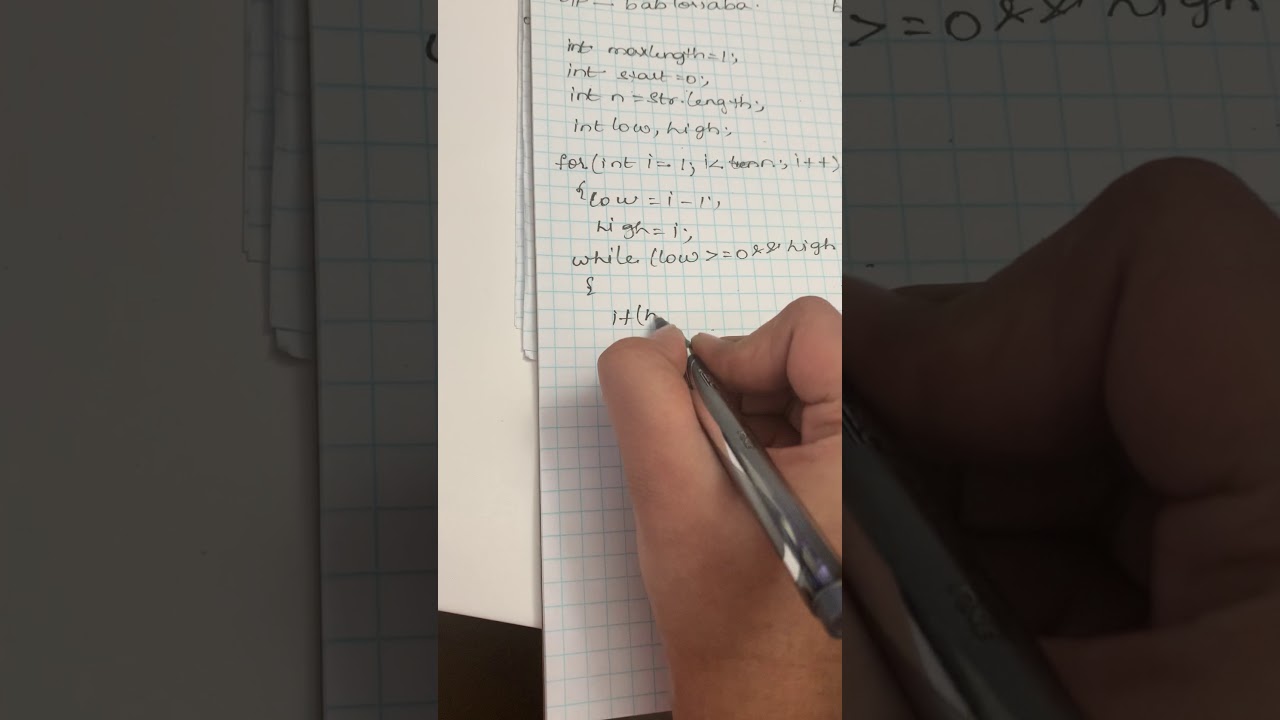 int maxlength=1;
int start=0;
int n=str.length;
int low, high;
for(int i=1; i< n; i++)
{low = i-1;
high=i;
while (low >=0 && high
{
if(h